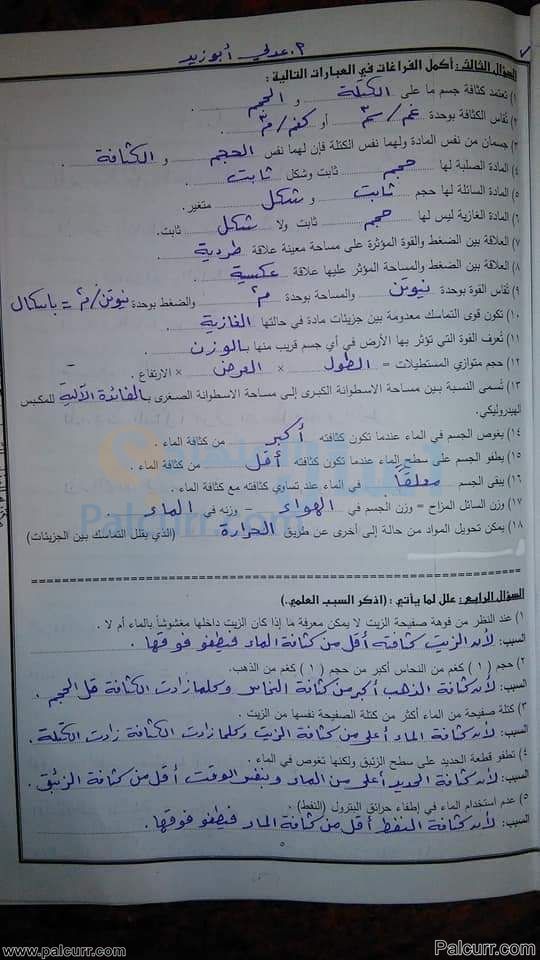 م. عدلي أبوزيد
السؤال الثالث: أكمل الفراغات في العبارات التالية :
١) تعتمد كثافة جسم ما على الكتلة و الحجم .
٢) تُقاس الكثافة بوحدة غم/سم٣ أو كغم/م٣ .
٣) جسمان من نفس المادة ولهما نفس الكتلة فإن لهما نفس الحجم و الكثافة .
٤) المادة الصلبة لها حجم ثابت وشكل ثابت .
٥) المادة السائلة لها حجم ثابت و شكل متغير .
٦) المادة الغازية ليس لها حجم ثابت ولا شكل ثابت .
٧) العلاقة بين الضغط والقوة المؤثرة على مساحة معينة علاقة طردية .
٨) العلاقة بين الضغط والمساحة المؤثر عليها علاقة عكسية .
٩) تُقاس القوة بوحدة نيوتن والمساحة بوحدة م٢ والضغط بوحدة نيوتن/م٢ = باسكال
١٠) تكون قوى التماسك معدومة بين جزيئات مادة في حالتها الغازية .
١١) تُعرف القوة التي تؤثر بها الأرض في أي جسم قريب منها بالوزن .
١٢) حجم متوازي المستطيلات = الطول × العرض × الارتفاع .
١٣) تُسمى النسبة بين مساحة الاسطوانة الكبرى إلى مساحة الاسطوانة الصغرى بالفائدة الآلية للمكبس
الهيدروليكي.
١٤) يغوص الجسم في الماء عندما تكون كثافته أكبر من كثافة الماء .
١٥) يطفو الجسم على سطح الماء عندما تكون كثافته أقل من كثافة الماء .
١٦) يبقى الجسم معلقاً في الماء عند تساوي كثافته مع كثافة الماء .
١٧) وزن السائل المزاح = وزن الجسم في الهواء – وزنه في الماء .
١٨) يمكن تحويل المواد من حالة إلى أخرى عن طريق الحرارة (الذي يقلل التماسك بين الجزيئات)
السؤال الرابع: علل لما يأتي : (اذكر السبب العلمي.)
١) عند النظر من فوهة صفيحة الزيت لا يمكن معرفة ما إذا كان الزيت داخلها مغشوشاً بالماء أم لا .
السبب: لأن الزيت كثافته أقل من كثافة الماء فيطفو فوقها .
٢) حجم (١) كغم من النحاس أكبر من حجم (١) كغم من الذهب.
السبب: لأن كثافة الذهب أكبر من كثافة النحاس وكلما زادت الكثافة قل الحجم .
٣) كتلة صفيحة من الماء أكثر من كتلة الصفيحة نفسها من الزيت.
السبب: لأن كثافة الماء أعلى من كثافة الزيت وكلما زادت الكثافة زادت الكتلة .
٤) تطفو قطعة الحديد على سطح الزئبق ولكنها تغوص في الماء .
السبب: لأن كثافة الحديد أعلى من الماء وبنفس الوقت أقل من كثافة الزئبق .
٥) عدم استخدام الماء في إطفاء حرائق البترول (النفط).
السبب: لأن كثافة النفط أقل من كثافة الماء فيطفو فوقها .
٥
Palcurr.com
www.palcurr.com
Palcurr.com